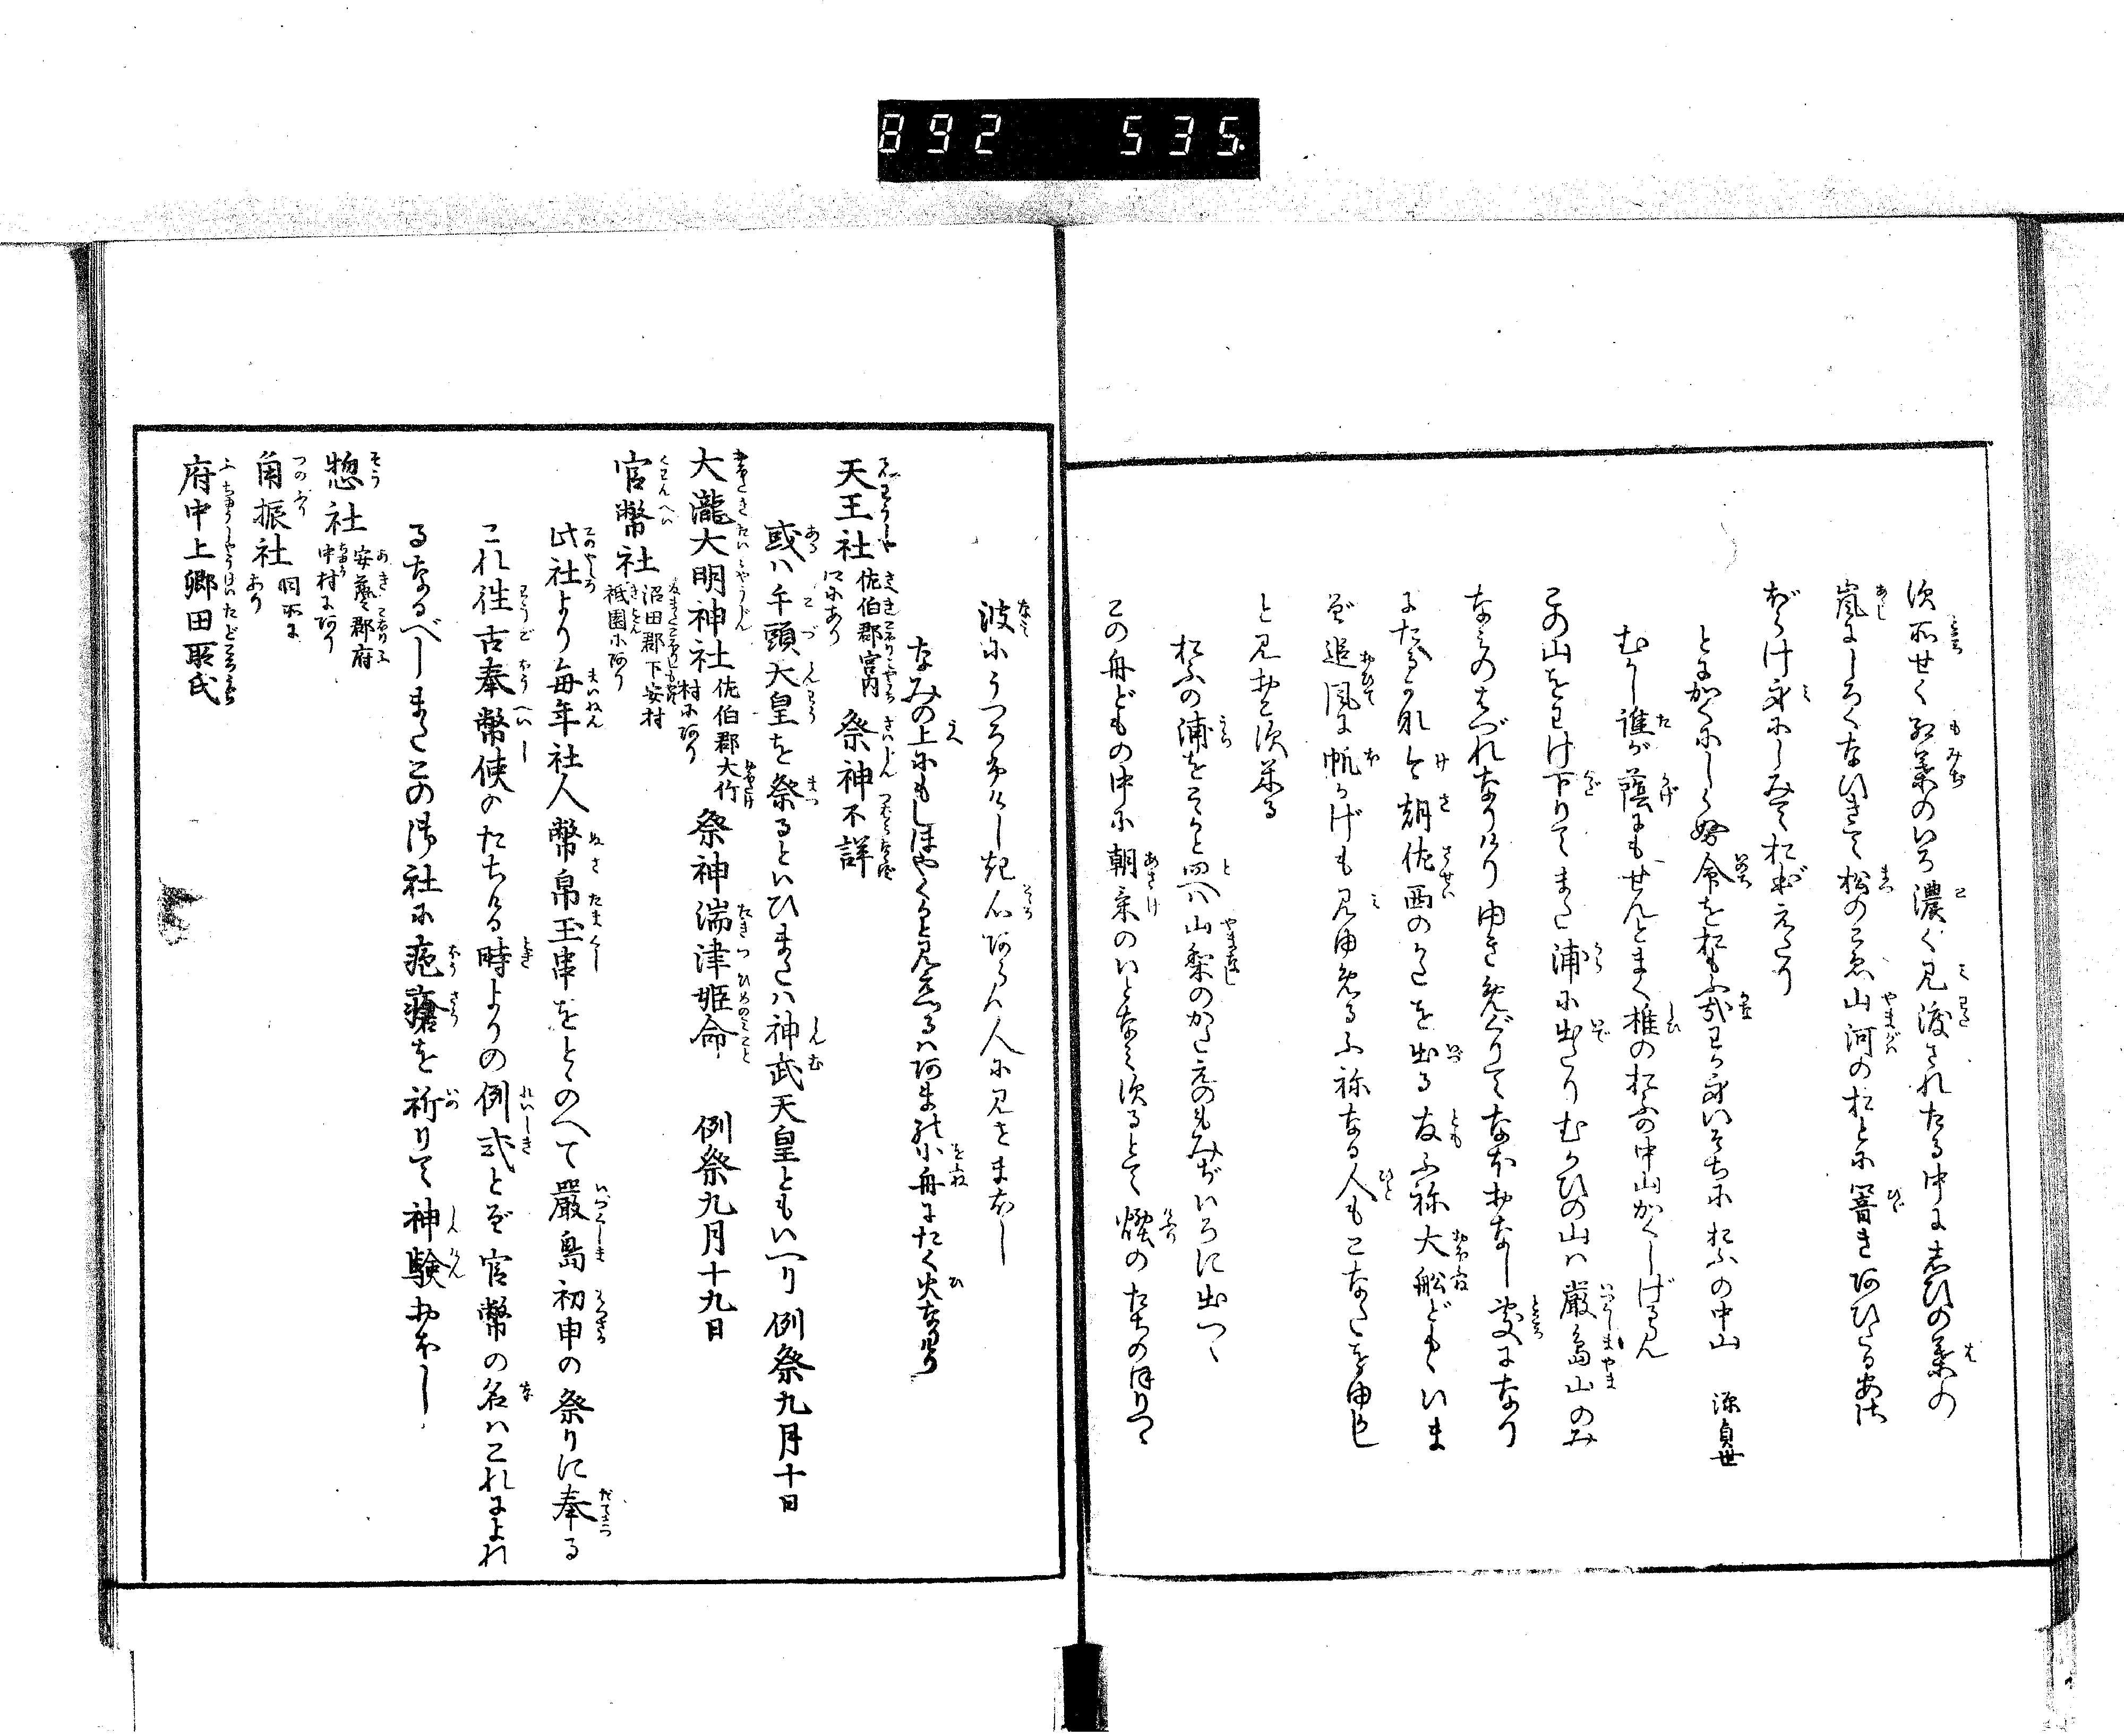 892 535
所せく紅葉のいろ濃く見渡されたる中にしひの葉の
嵐にしろくなひきて松のこゑ山河のおとに響きあひたる
がらけ身にしみておぼえたり
とにかくにしらぬ命をおもふ哉わが身いそぢにおふの中山 源貞世
むかし誰が蔭にもせんとまく椎のおふの中山かくしげるらん
この山をこえ下りてまた浦に出たりむかひの山ハ厳島山のみ
なみのはづれなりけりゆきめぐりてなほおなし処になり
にたるかな今朝佐西のかたを出る友ふね大船どもゝいま
ぞ追風に帆かげも見ゆめるふねなる人もこなたをゆかし
と見おこすめる
おふの浦をこれかと問へハ山梨のかたえのもみぢいろに出つゝ
この舟どもの中に朝気のいとなみするとて煙のたちのほりつゝ
波にうつろふけしき心あらん人に見せまほし
なみの上にもしほやくかと見えつるハあまの小舟にたく火なりけり
天王社 佐伯郡宮内村にあり 祭神不詳
或ハ牛頭天皇を祭るといひまたハ神武天皇ともいへり 例祭九月十日
大瀧大明神社 佐伯郡大竹村にあり 祭神湍津姫命 例祭九月十九日
官幣社 沼田郡下安村祇園にあり
此社より毎年社人幣帛玉串をとゝのへて厳島初申の祭りに奉る
これ往古奉幣使のたちたる時よりの例式とぞ官幣の名ハこれによれ
るなるべしまたこの御社に疱瘡を祈りて神験おほし
惣社 安藝郡府中村にあり
角振社 同所にあり
府中上卿田所氏